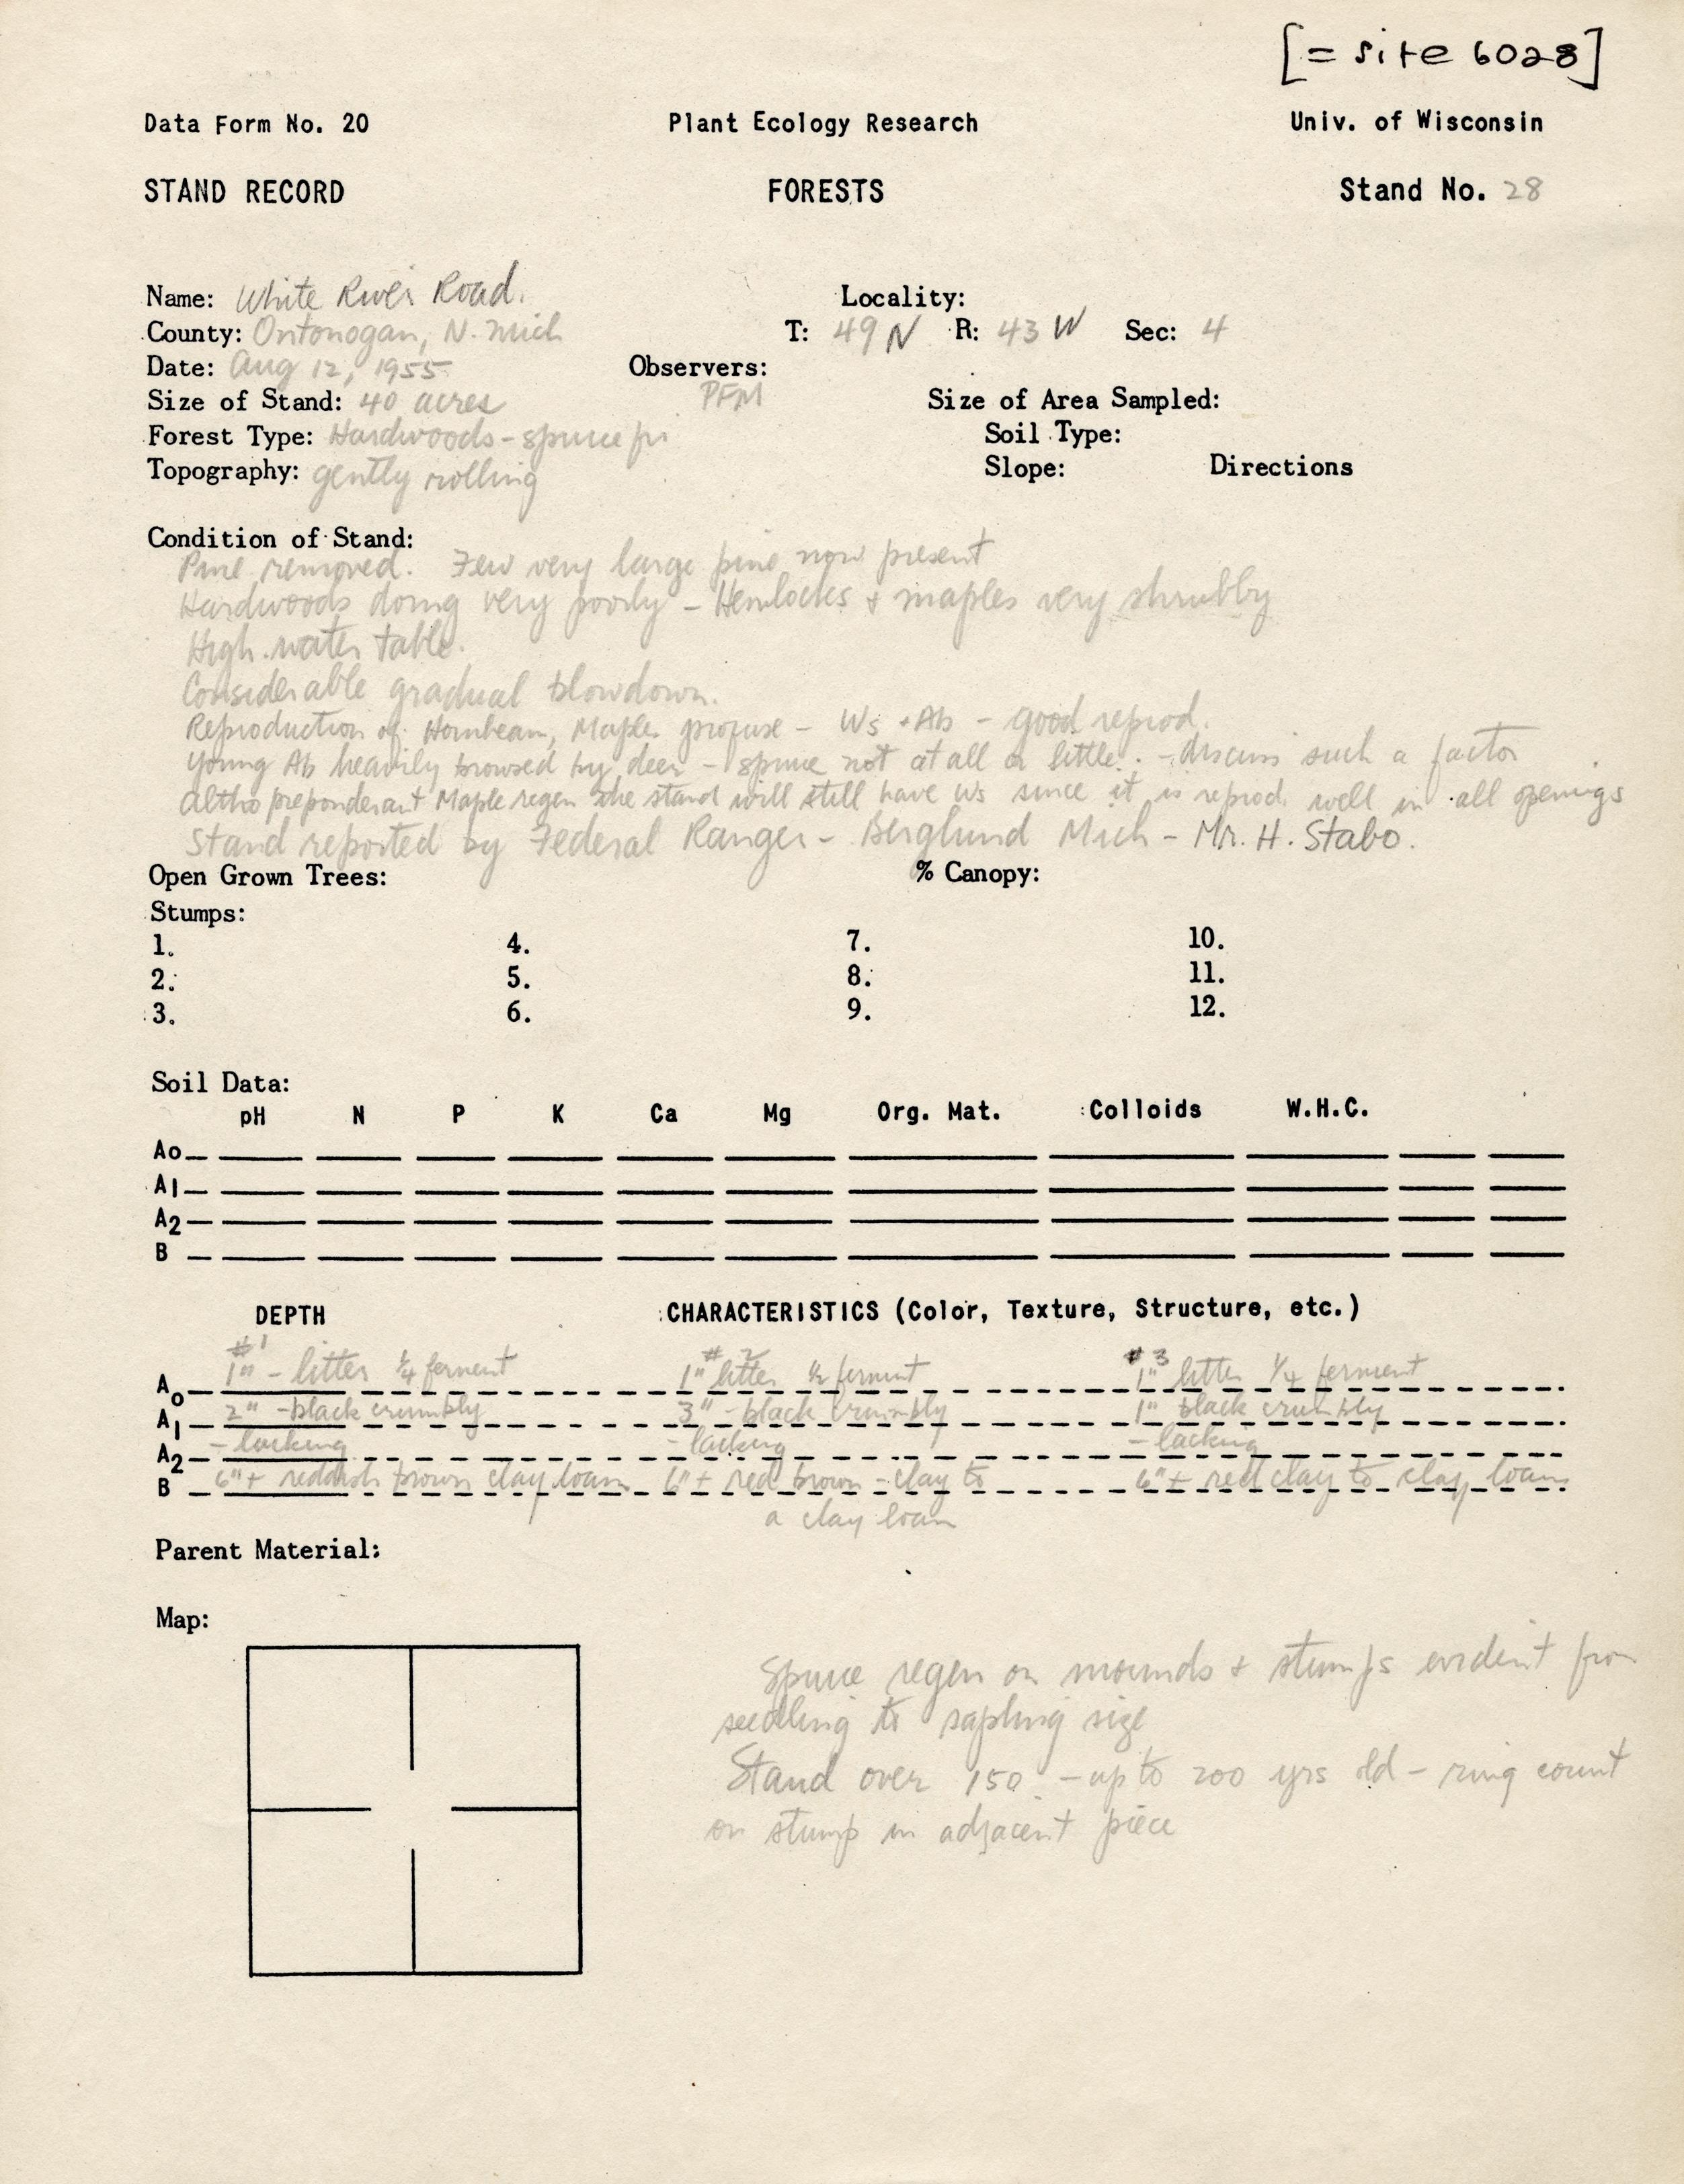 [= site 6028]
Data Form No. 20 Plant Ecology Research Univ. of Wisconsin
STAND RECORD FORESTS Stand No. 28
Name: White River Road. Locality:
County: Ontonogan, N. Mich T: 49 N R: 43 W Sec: 4
Date: Aug 12, 1955 Observers:
Size of Stand: 40 acres PFM Size of Area Sampled:
Forest Type: Hardwoods - spruce fir Soil Type:
Topography: gently rolling Slope: Directions
Condition of Stand:
Pine removed. Few very large pine now present
Hardwoods doing very poorly - Hemlocks + maples very shrubby
High water table.
Considerable gradual blowdown.
Reproduction of Hornbeam, Maple profuse - Ws + Ab - good reprod.
Young Ab heavily browsed by deer - spruce not at all or little. - discuss such a factor
Altho preponderant Maple regen the stand will still have Ws since it is reprod. well in all openings
Stand reported by Federal Ranger - Berglund Mich - Mr. H. Stabo.
Open Grown Trees: % Canopy:
Stumps:
1. 4. 7. 10.
2. 5. 8. 11.
3. 6. 9. 12.
Soil Data:
pH N P K Ca Mg Org. Mat. Colloids W.H.C.
Ao
A1
A2
B
DEPTH CHARACTERISTICS (Color, Texture, Structure, etc.)
#1 #2 #3
Ao 1" - litter ¼ ferment 1" litter ½ ferment 1" litter ¼ ferment
A1 2" - black crumbly 3" - black crumbly 1" black crumbly
A2 - lacking - lacking - lacking
B 6"+ reddish brown clay loam 6"+ red brown - clay to 6"+ red clay to clay loam
a clay loam
Parent Material:
Map:
Spruce regen on mounds + stumps evident from
seedling to sapling size
Stand over 150 - up to 200 yrs old - ring count
on stump in adjacent piece